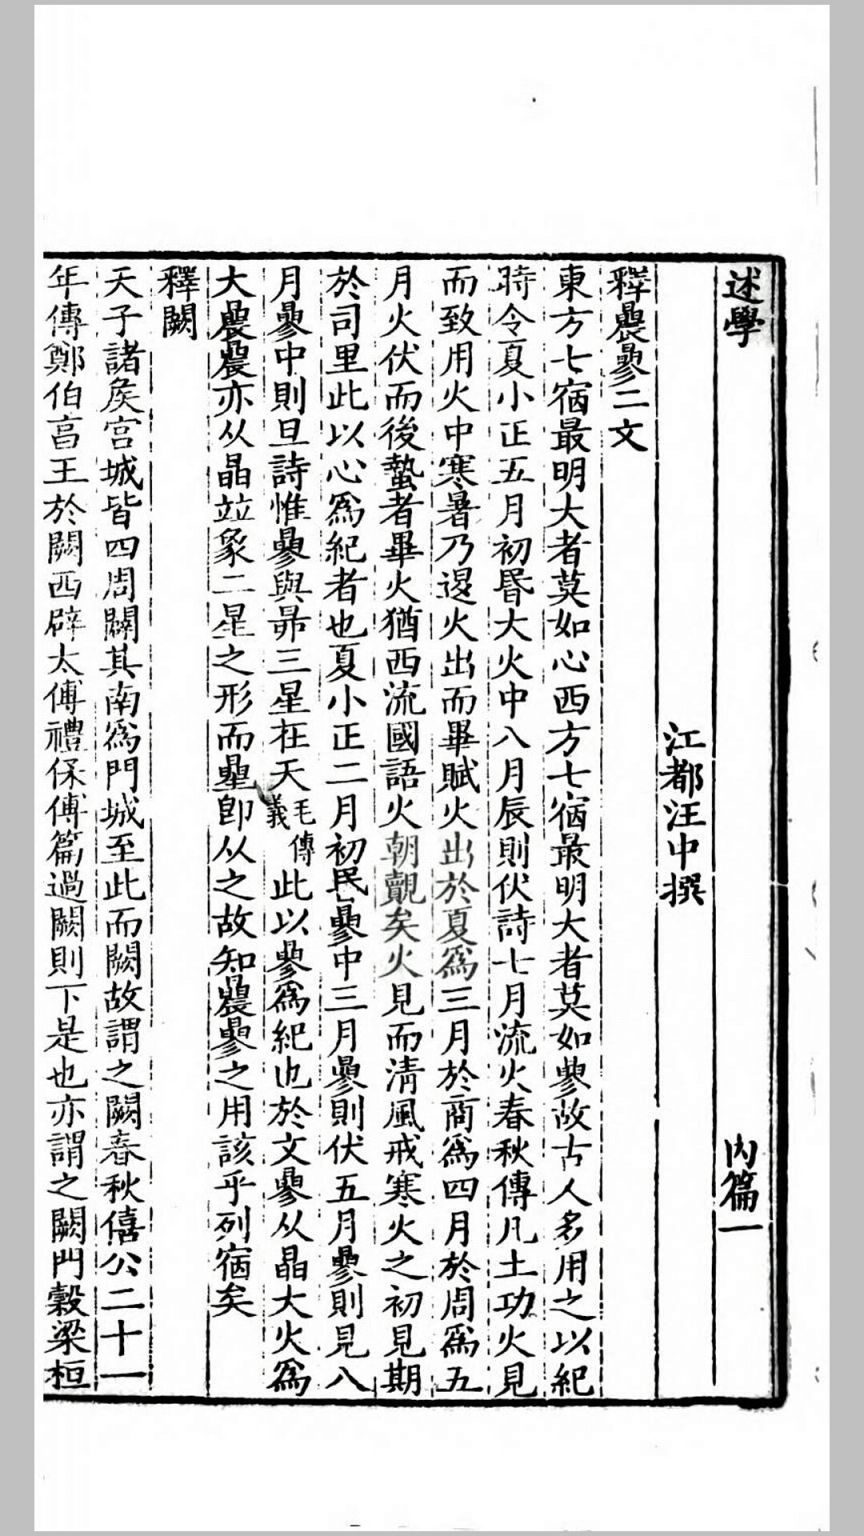 述學 內篇一
江都汪中撰
釋曟曑二文
東方七宿最明大者莫如心西方七宿最明大者莫如曑故古人多用之以紀
時令夏小正五月初昬大火中八月辰則伏詩七月流火春秋傳凡土功火見
而致用火中寒暑乃退火出而畢賦火出於夏爲三月於商爲四月於周爲五
月火伏而後蟄者畢火猶西流國語火朝覿矣火見而清風戒寒火之初見期
於司里此以心爲紀者也夏小正二月初民曑中三月曑則伏五月曑則見八
月曑中則旦詩惟曑與昴三星在天毛傳義此以曑爲紀也於文曑从晶大火爲
大曟曟亦从晶竝象二星之形而曐卽从之故知曟曑之用該乎列宿矣
釋闕
天子諸矦宫城皆四周闕其南爲門城至此而闕故謂之闕春秋僖公二十一
年傳鄭伯亯王於闕西辟太傅禮保傅篇過闕則下是也亦謂之闕門穀梁桓